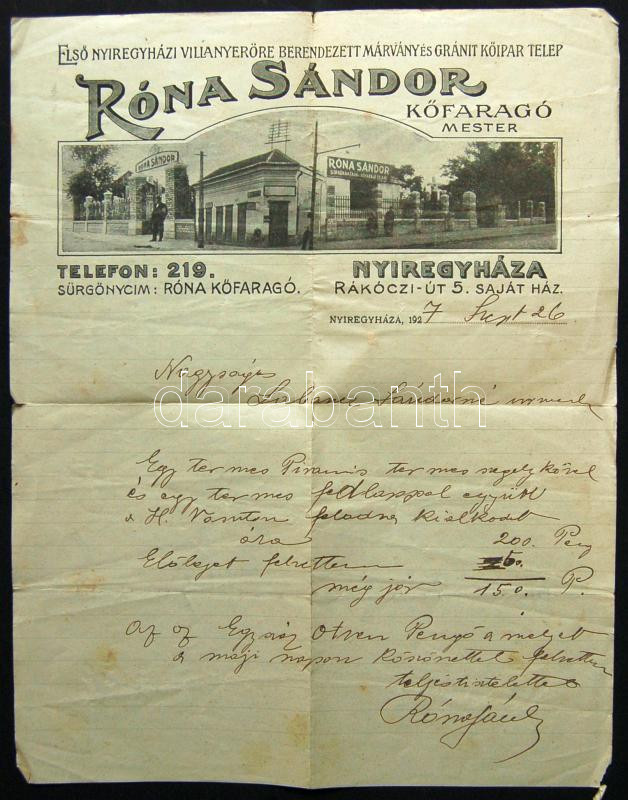 ELSŐ NYIREGYHÁZI VILLANYERŐRE BERENDEZETT MÁRVÁNY ÉS GRÁNIT KŐIPAR TELEP
RÓNA SÁNDOR
KŐFARAGÓ
MESTER
RÓNA SÁNDOR
RÓNA SÁNDOR
TELEFON: 219.
SÜRGÖNYCIM: RÓNA KŐFARAGÓ.
NYIREGYHÁZA
RÁKÓCZI-ÚT 5. SAJÁT HÁZ.
NYIREGYHÁZA, 1927 Szept 26
Nagyságos
Sándorné
darabanth
Egy termes Piramis termes segély kővel
és egy termes fedlappal együtt
a H. feladva
ára 200. Peng
Előleget felvettem 50.
még jár 150. P.
Az az Egyszáz Ötven Pengő a melyet
a maji napon Köszönettel felvettem
teljes tisztelettel
Róna Sándor